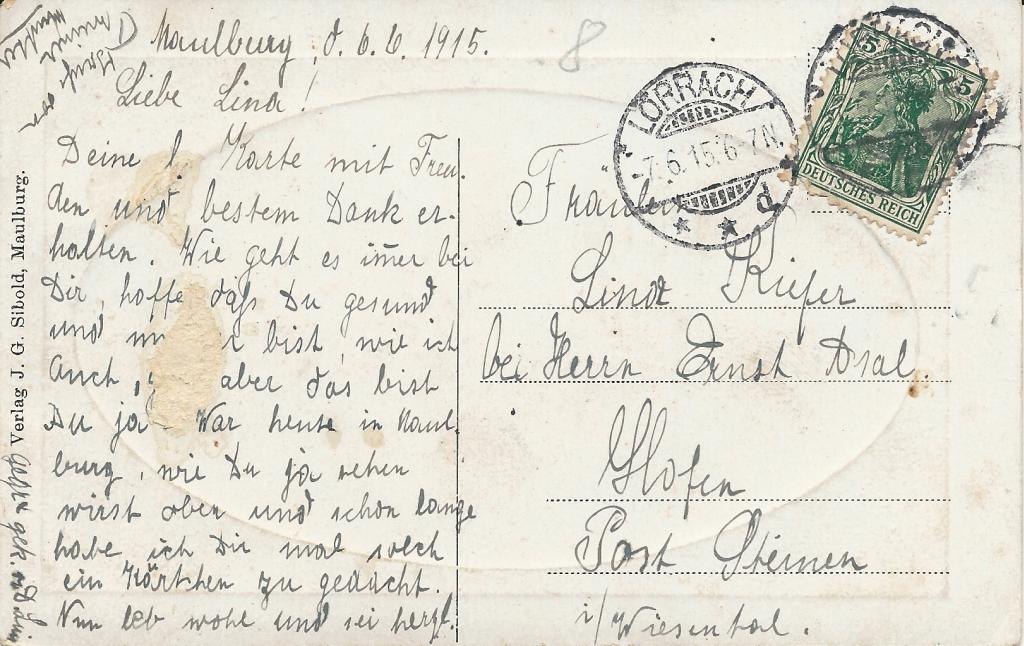 Maulburg, d. 6.6.1915.
8
Liebe Lina!
Deine l. Karte mit Freu-
den und bestem Dank er-
halten. Wie geht es im̄er bei
Dir, hoffe daß Du gesund
und bist, wie ich
auch, aber das bist
Du ja. War heute in Maul-
burg, wie Du ja sehen
wirst oben und schon lange
habe ich Dir mal solch
ein Kärtchen zu gedacht.
Nun leb wohl und sei herzl.
Verlag J. G. Sibold, Maulburg.
LÖRRACH
7.6.15.6-7N.
5 5
DEUTSCHES REICH
Fräulein
Lina Kiefer
bei Herrn Ernst Asal.
Hofen
Post Steinen
i/Wiesental.